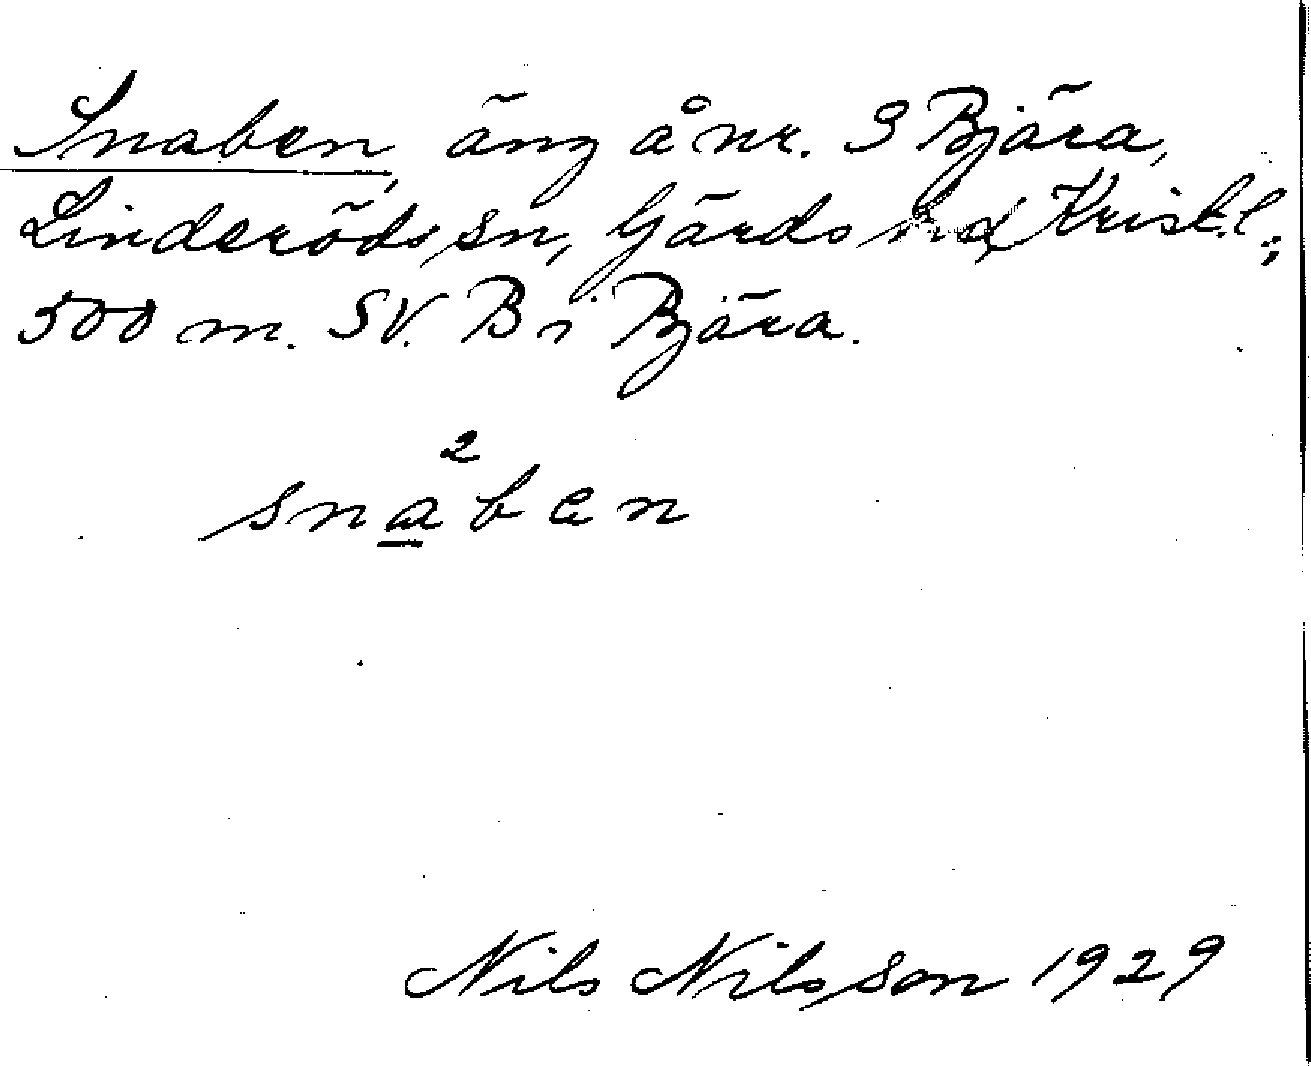 Snaben, äng å nr. 3 Bjära,
Linderöds sn, Gärds hd Krist.l.;
500 m. SV. B i Bjära.
2
snaben
Nils Nilsson 1929